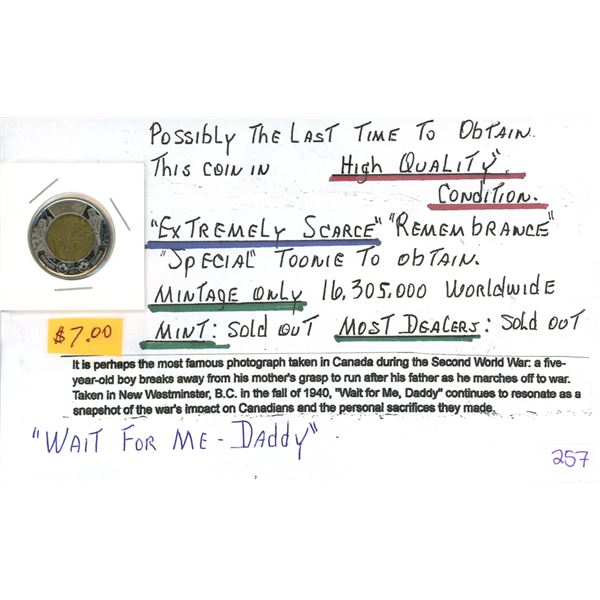 Possibly The Last Time To Obtain.
This coin in High Quality".
Condition.
"Extremely Scarce" "Remembrance"
"Special" Toonie To obtain.
Mintage Only 16,305,000 Worldwide
$7.00
Mint: Sold out Most Dealers: Sold out
It is perhaps the most famous photograph taken in Canada during the Second World War: a five-
year-old boy breaks away from his mother's grasp to run after his father as he marches off to war.
Taken in New Westminster, B.C. in the fall of 1940, "Wait for Me, Daddy" continues to resonate as a
snapshot of the war's impact on Canadians and the personal sacrifices they made.
"Wait For Me - Daddy".
257